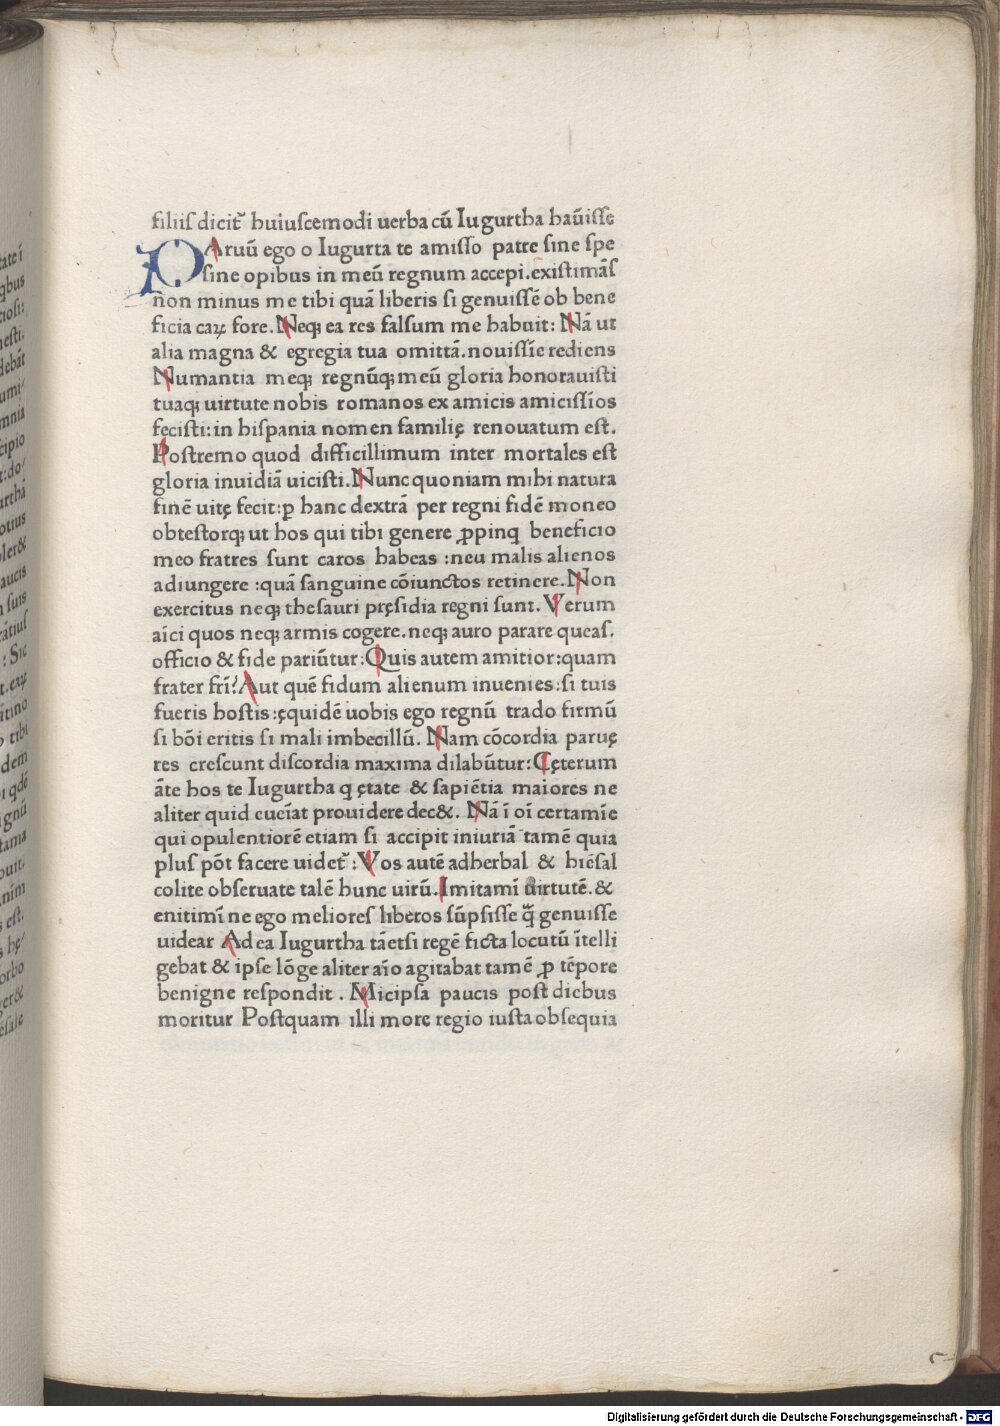 filiis dicit᷑ huiuscemodi uerba cū Iugurtha hauīsse
PAruū ego o Iugurta te amisso patre sine spe
sine opibus in meū regnum accepi.existimās
non minus me tibi quā liberis si genuissē ob bene
ficia caꝝ fore.Neqꝫ ea res falsum me habuit: Nā ut
alia magna & egregia tua omittā.nouissīe rediens
Numantia meqꝫ regnūqꝫ meū gloria honorauisti
tuaqꝫ uirtute nobis romanos ex amicis amicissīos
fecisti:in hispania nomen familię renouatum est.
Postremo quod difficillimum inter mortales est
gloria inuidiā uicisti.Nunc quoniam mihi natura
finē uitę fecit:ꝑ hanc dextrā per regni fidē moneo
obtestorqꝫ ut hos qui tibi genere ꝓpinq beneficio
meo fratres sunt caros habeas :neu malis alienos
adiungere :quā sanguine cōiunctos retinere.Non
exercitus neqꝫ thesauri pręsidia regni sunt.Verum
aīci quos neqꝫ armis cogere.neqꝫ auro parare queas.
officio & fide pariūtur:Quis autem amitior:quam
frater frī?Aut quē fidum alienum inuenies:si tuis
fueris hostis:ęquidē uobis ego regnū trado firmū
si bōi eritis si mali imbecillū. Nam cōcordia paruę
res crescunt discordia maxima dilabūtur:Cęterum
āte hos te Iugurtha q ętate & sapiētia maiores ne
aliter quid cucīat prouidere dec&. Nā ī oī certamīe
qui opulentiorē etiam si accipit iniuriā tamē quia
plus pōt facere uidet᷑ :Vos autē adherbal & hiēsal
colite obseruate talē hunc uirū.Imitamī uirtutē.&
enitimī ne ego meliores liberos sūpsisse q̄ genuisse
uidear Ad ea Iugurtha tāetsi regē ficta locutū ītelli
gebat & ipse lōge aliter aīo agitabat tamē ꝓ tēpore
benigne respondit . Micipsa paucis post diebus
moritur Postquam illi more regio iusta obsequia
Digitalisierung gefördert durch die Deutsche Forschungsgemeinschaft - DFG